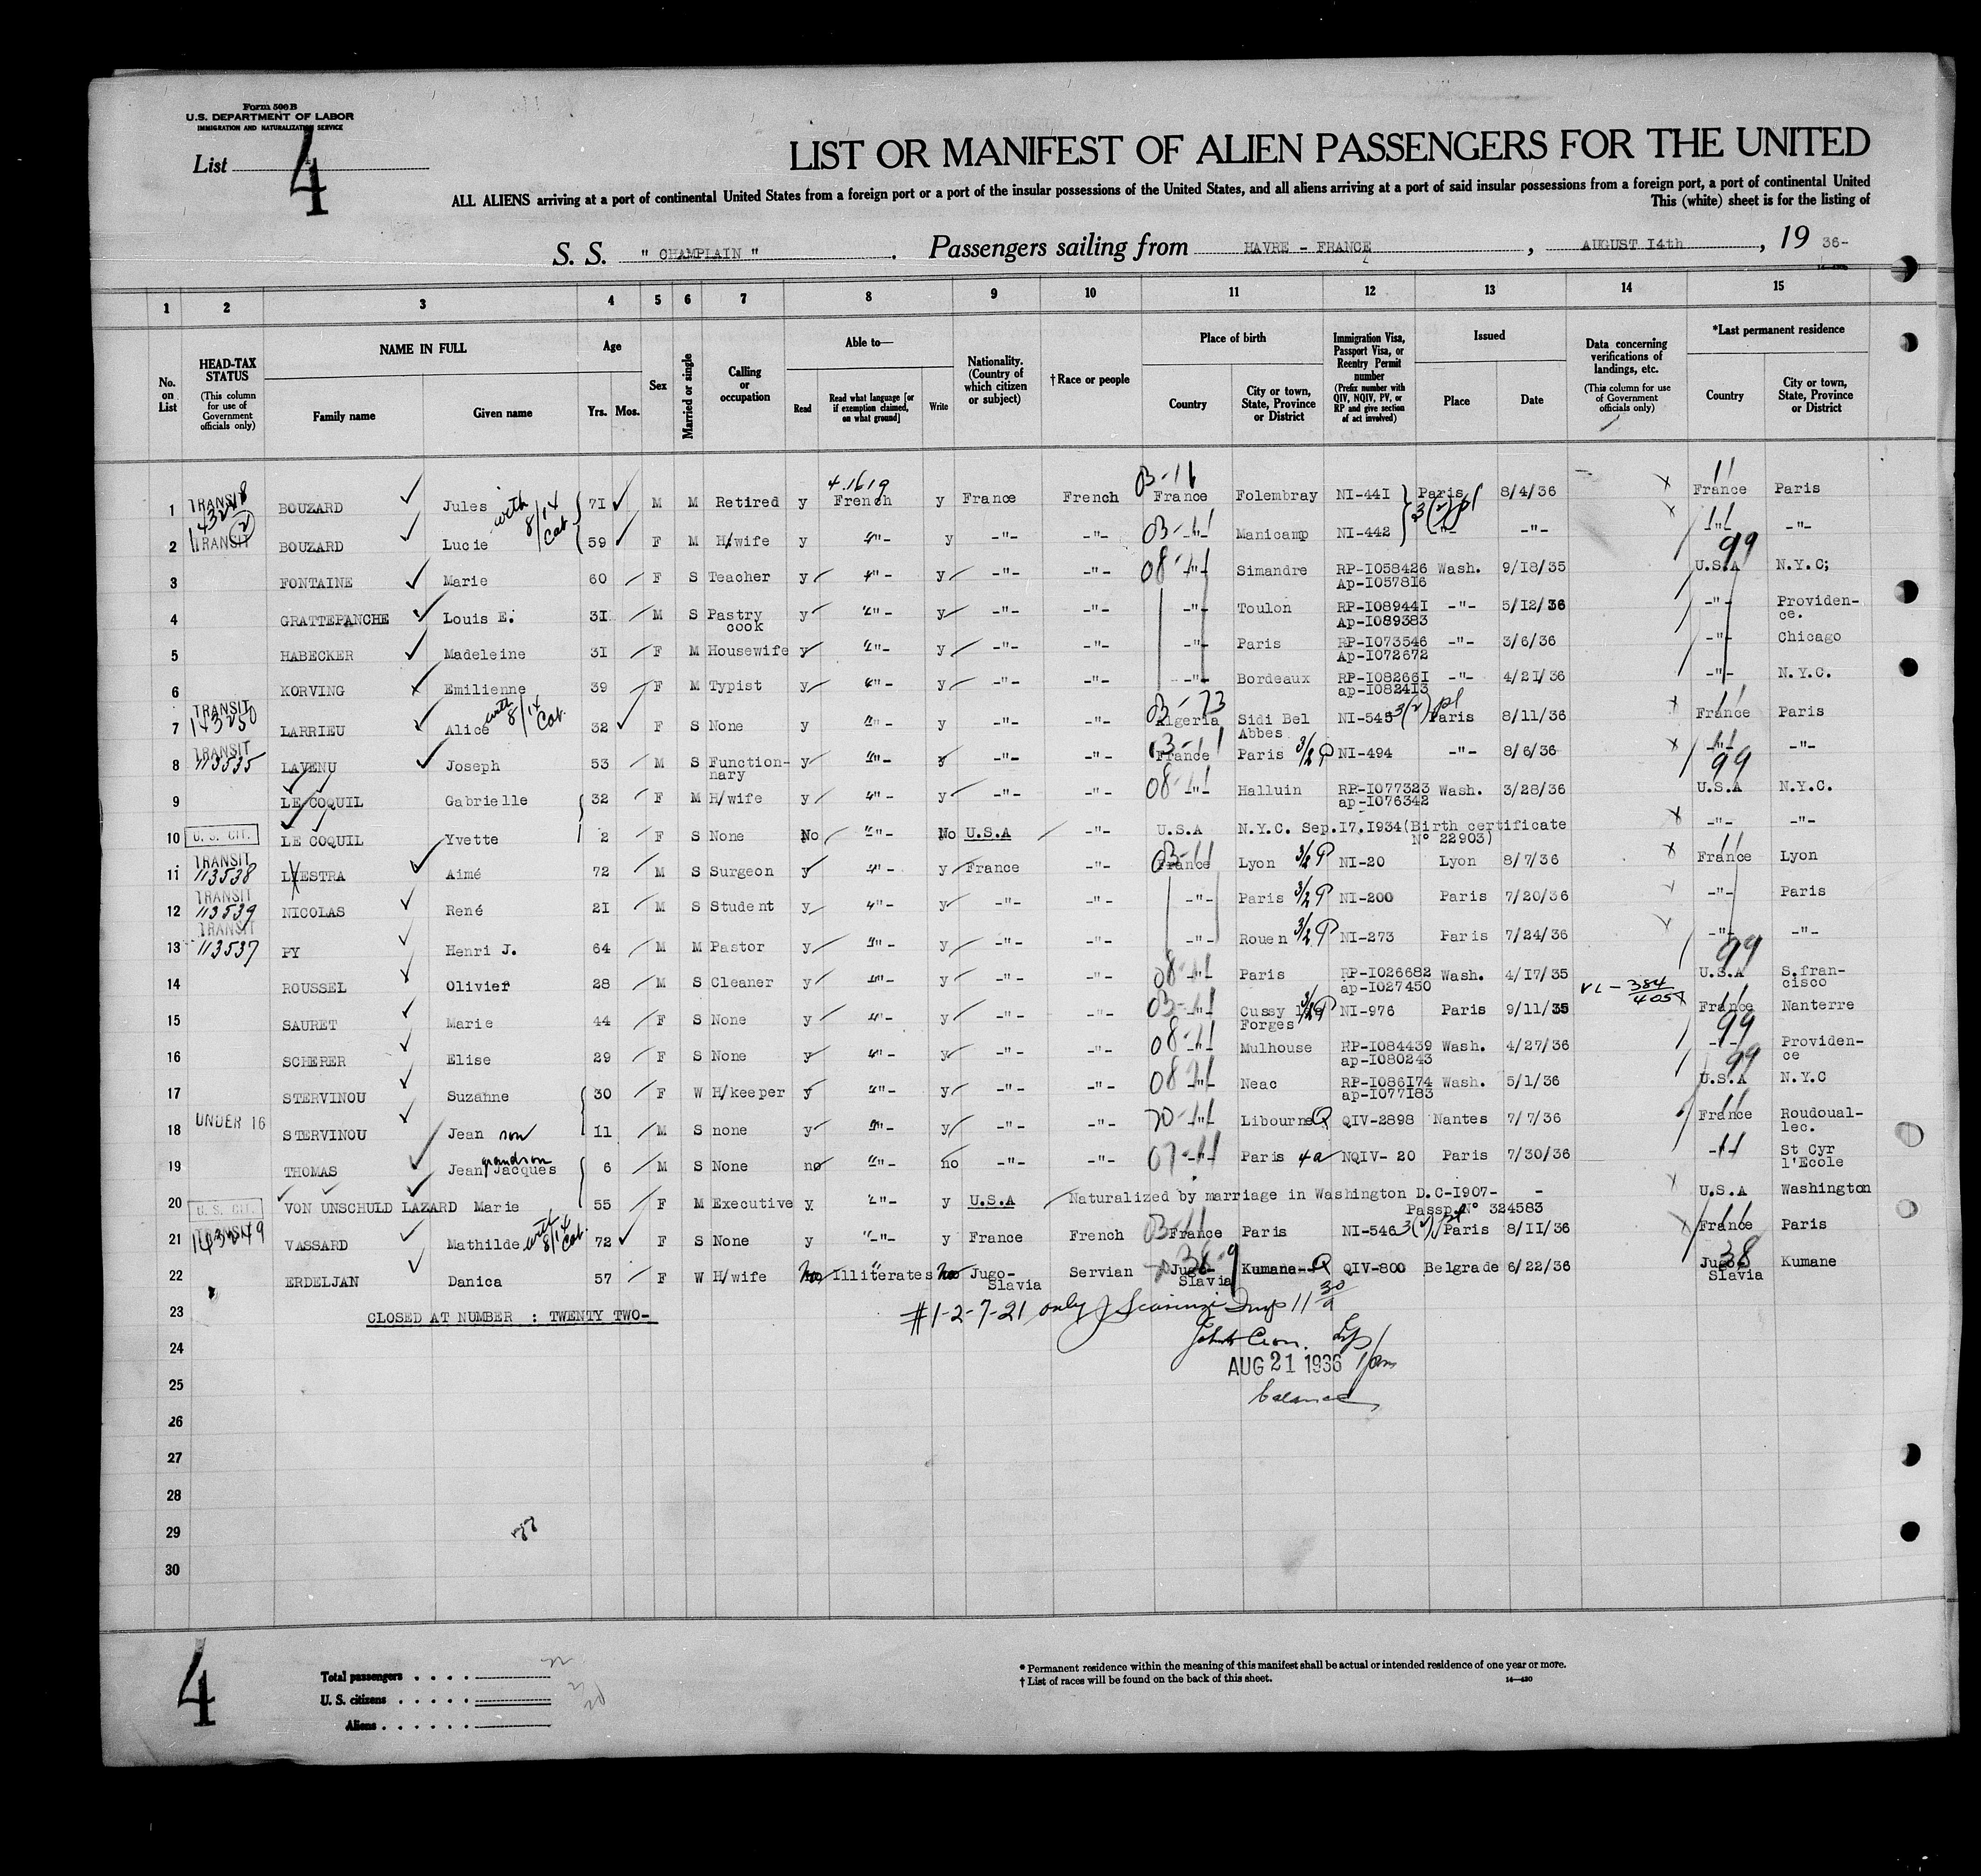 Form 500 B
U.S. DEPARTMENT OF LABOR
IMMIGRATION AND NATURALIZATION SERVICE
List 4
LIST OR MANIFEST OF ALIEN PASSENGERS FOR THE UNITED
ALL ALIENS arriving at a port of continental United States from a foreign port or a port of the insular possessions of the United States, and all aliens arriving at a port of said insular possessions from a foreign port, a port of continental United
This (white) sheet is for the listing of
S. S. " CHAMPLAIN " . Passengers sailing from HAVRE - FRANCE , AUGUST I4th , 19 36-
1 2 3 4 5 6 7 8 9 10 11 12 13 14 15
No. on List
HEAD-TAX STATUS (This column for use of Government officials only)
NAME IN FULL
Family name Given name
Age
Yrs. Mos.
Sex
Married or single
Calling or occupation
Able to—
Read Read what language [or if exemption claimed, on what ground] Write
Nationality. (Country of which citizen or subject)
†Race or people
Place of birth
Country City or town, State, Province or District
Immigration Visa, Passport Visa, or Reentry Permit number (Prefix number with QIV, NQIV, PV, or RP and give section of act involved)
Issued
Place Date
Data concerning verifications of landings, etc. (This column for use of Government officials only)
*Last permanent residence
Country City or town, State, Province or District
1 TRANSIT BOUZARD Jules with 8/14 Cat 7I M M Retired y French y France French 03-11 France Folembray NI-44I Paris 8/4/36 11 France Paris
2 TRANSIT BOUZARD Lucie 59 F M H/wife y -"- y -"- -"- 03-11 -"- Manicamp NI-442 -"- -"- 11 -"- -"-
3 FONTAINE Marie 60 F S Teacher y -"- y -"- -"- 08-11 -"- Simandre RP-I058426 Ap-I0578I6 Wash. 9/I8/35 99 U.S.A N.Y.C;
4 GRATTEPANCHE Louis E. 3I M S Pastry cook y -"- y -"- -"- -"- Toulon RP-I08944I Ap-I089383 -"- 5/I2/36 -"- Providen-ce.
5 HABECKER Madeleine 3I F M Housewife y -"- y -"- -"- -"- Paris RP-I073546 Ap-I072672 -"- 3/6/36 -"- Chicago
6 KORVING Emilienne 39 F M Typist y -"- y -"- -"- -"- Bordeaux RP-I08266I ap-I0824I3 -"- 4/2I/36 -"- N.Y.C.
7 TRANSIT 143250 LARRIEU Alice with 8/14 Cat. 32 F S None y -"- y -"- -"- 03-73 Algeria Sidi Bel Abbes NI-545 3(2)pl Paris 8/II/36 11 France Paris
8 TRANSIT 113535 LAVENU Joseph 53 M S Function-nary y -"- y -"- -"- 03-11 France Paris 3/2 P NI-494 -"- 8/6/36 11 -"- -"-
9 LE COQUIL Gabrielle 32 F M H/wife y -"- y -"- -"- 08-11 -"- Halluin RP-I077323 ap-I076342 Wash. 3/28/36 99 U.S.A N.Y.C.
10 U. S. CIT. LE COQUIL Yvette 2 F S None No -"- No U.S.A -"- U.S.A N.Y.C. Sep.I7.I934(Birth certificate N° 22903) -"- -"-
11 TRANSIT 113538 LIESTRA Aimé 72 M S Surgeon y -"- y France -"- 03-11 France Lyon 3/2 P NI-20 Lyon 8/7/36 11 France Lyon
12 TRANSIT 113539 NICOLAS René 2I M S Student y -"- y -"- -"- -"- Paris 3/2 P NI-200 Paris 7/20/36 -"- Paris
13 TRANSIT 113537 PY Henri J. 64 M M Pastor y -"- y -"- -"- -"- Rouen 3/2 P NI-273 Paris 7/24/36 -"- -"-
14 ROUSSEL Olivier 28 M S Cleaner y -"- y -"- -"- 08-11 -"- Paris RP-I026682 ap-I027450 Wash. 4/I7/35 99 U.S.A S.fran-cisco
15 SAURET Marie 44 F S None y -"- y -"- -"- 03-11 -"- Cussy les Forges 3/2 P NI-976 Paris 9/II/35 11 France Nanterre
16 SCHERER Elise 29 F S None y -"- y -"- -"- 08-11 -"- Mulhouse RP-I084439 ap-I080243 Wash. 4/27/36 99 -"- Providen-ce
17 STERVINOU Suzanne 30 F W H/keeper y -"- y -"- -"- 08 11 -"- Neac RP-I086I74 ap-I077I83 Wash. 5/I/36 99 U.S.A N.Y.C
18 UNDER 16 STERVINOU Jean son 11 M S none y -"- y -"- -"- 70-11 -"- Libourne Q QIV-2898 Nantes 7/7/36 11 France Roudoual-lec.
19 THOMAS Jean Jacques grandson 6 M S None no -"- no -"- -"- 07-11 -"- Paris 4a NQIV- 20 Paris 7/30/36 11 St Cyr l'Ecole
20 U. S. CIT. VON UNSCHULD LAZARD Marie 55 F M Executive y -"- y U.S.A Naturalized by marriage in Washington D.C-I907- - Passp.N° 324583 U.S.A Washington
21 TRANSIT 143249 VASSARD Mathilde with 8/14 Cat. 72 F S None y -"- y France French 03-11 France Paris NI-546 3(2)pl Paris 8/II/36 11 France Paris
22 ERDELJAN Danica 57 F W H/wife no Illiterates no Jugo-Slavia Servian Jugo-Slavia Kumane- Q QIV-800 Belgrade 6/22/36 38 Jugo-Slavia Kumane
23 CLOSED AT NUMBER : TWENTY TWO- #1-2-7-21 only
24
AUG 21 1936
25 balance
26
27
28
29
30
4
Total passengers . . . .
U. S. citizens . . . . .
Aliens . . . . . .
* Permanent residence within the meaning of this manifest shall be actual or intended residence of one year or more.
† List of races will be found on the back of this sheet.